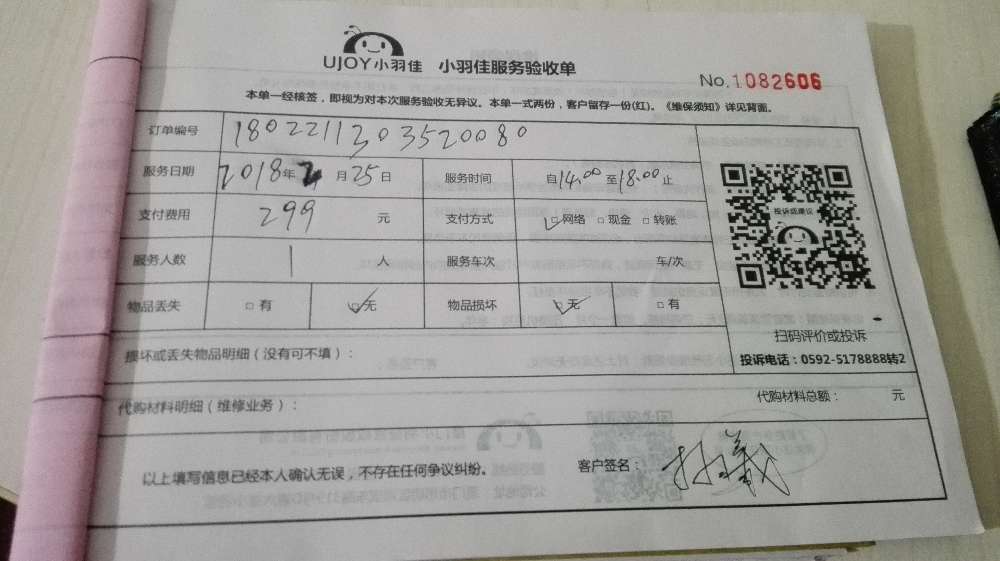 UJOY小羽佳 小羽佳服务验收单
No.1082606
本单一经核签，即视为对本次服务验收无异议。本单一式两份，客户留存一份(红)。《维保须知》详见背面。
订单编号 1802211303520080
服务日期 2018年2月25日 服务时间 自14:00至18:00止
支付费用 299 元 支付方式 □网络 □现金 □转账
投诉或建议
服务人数 1 人 服务车次 车/次
物品丢失 □有 □无 物品损坏 □无 □有
扫码评价或投诉
损坏或丢失物品明细（没有可不填）：
投诉电话：0592-5178888转2
代购材料明细（维修业务）：
代购材料总额： 元
以上填写信息已经本人确认无误，不存在任何争议纠纷。
客户签名：